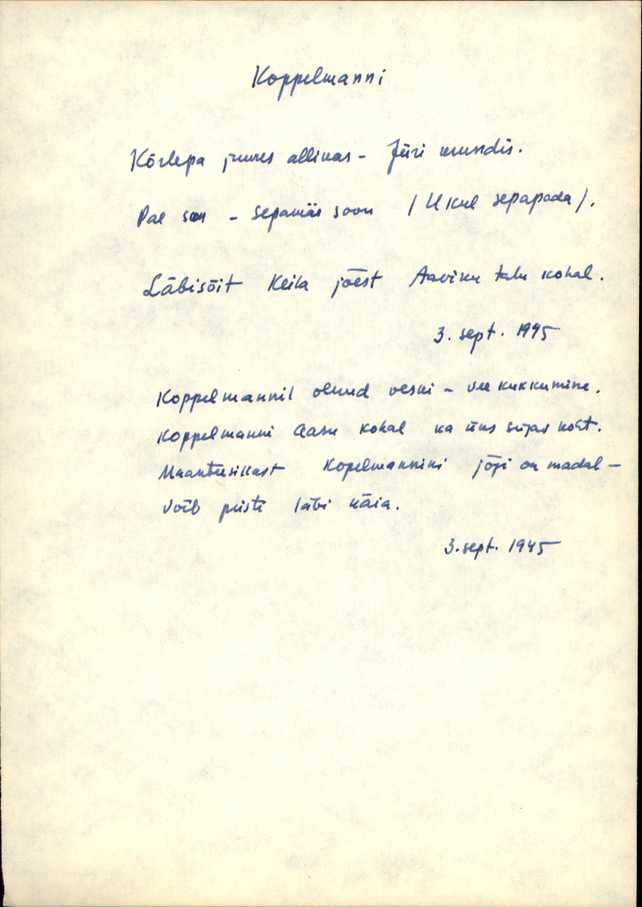 Koppelmanni
Kõrlepa juures allikas - Jüri
Pae soon - sepamäe soon / Ukul sepapada /.
Läbisõit Keila jõest Aaviku talu kohal.
3. sept. 1945
Koppelmannil olnud veski - vee kukkumine.
Koppelmanni aasa kohal ka üks sügav koht.
Maanteesillast Kopelmannini jõgi on madal -
võib püsti läbi käia.
3. sept. 1945